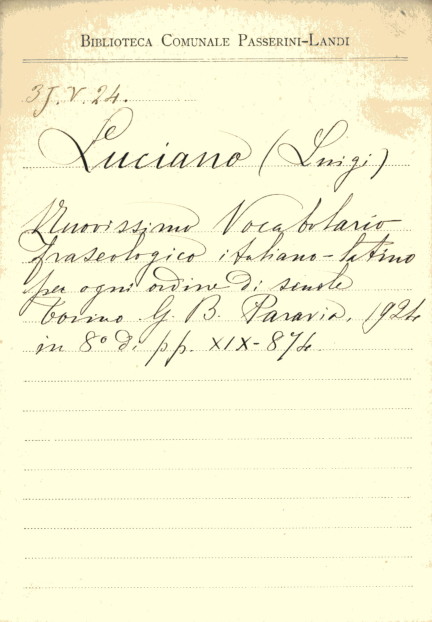 BIBLIOTECA COMUNALE PASSERINI-LANDI
3J.V.24.
Luciano (Luigi)
Nuovissimo Vocabolario
fraseologico italiano-latino
per ogni ordine di scuole
Torino G. B. Paravia, 1924
in 8° di pp. XIX-874.